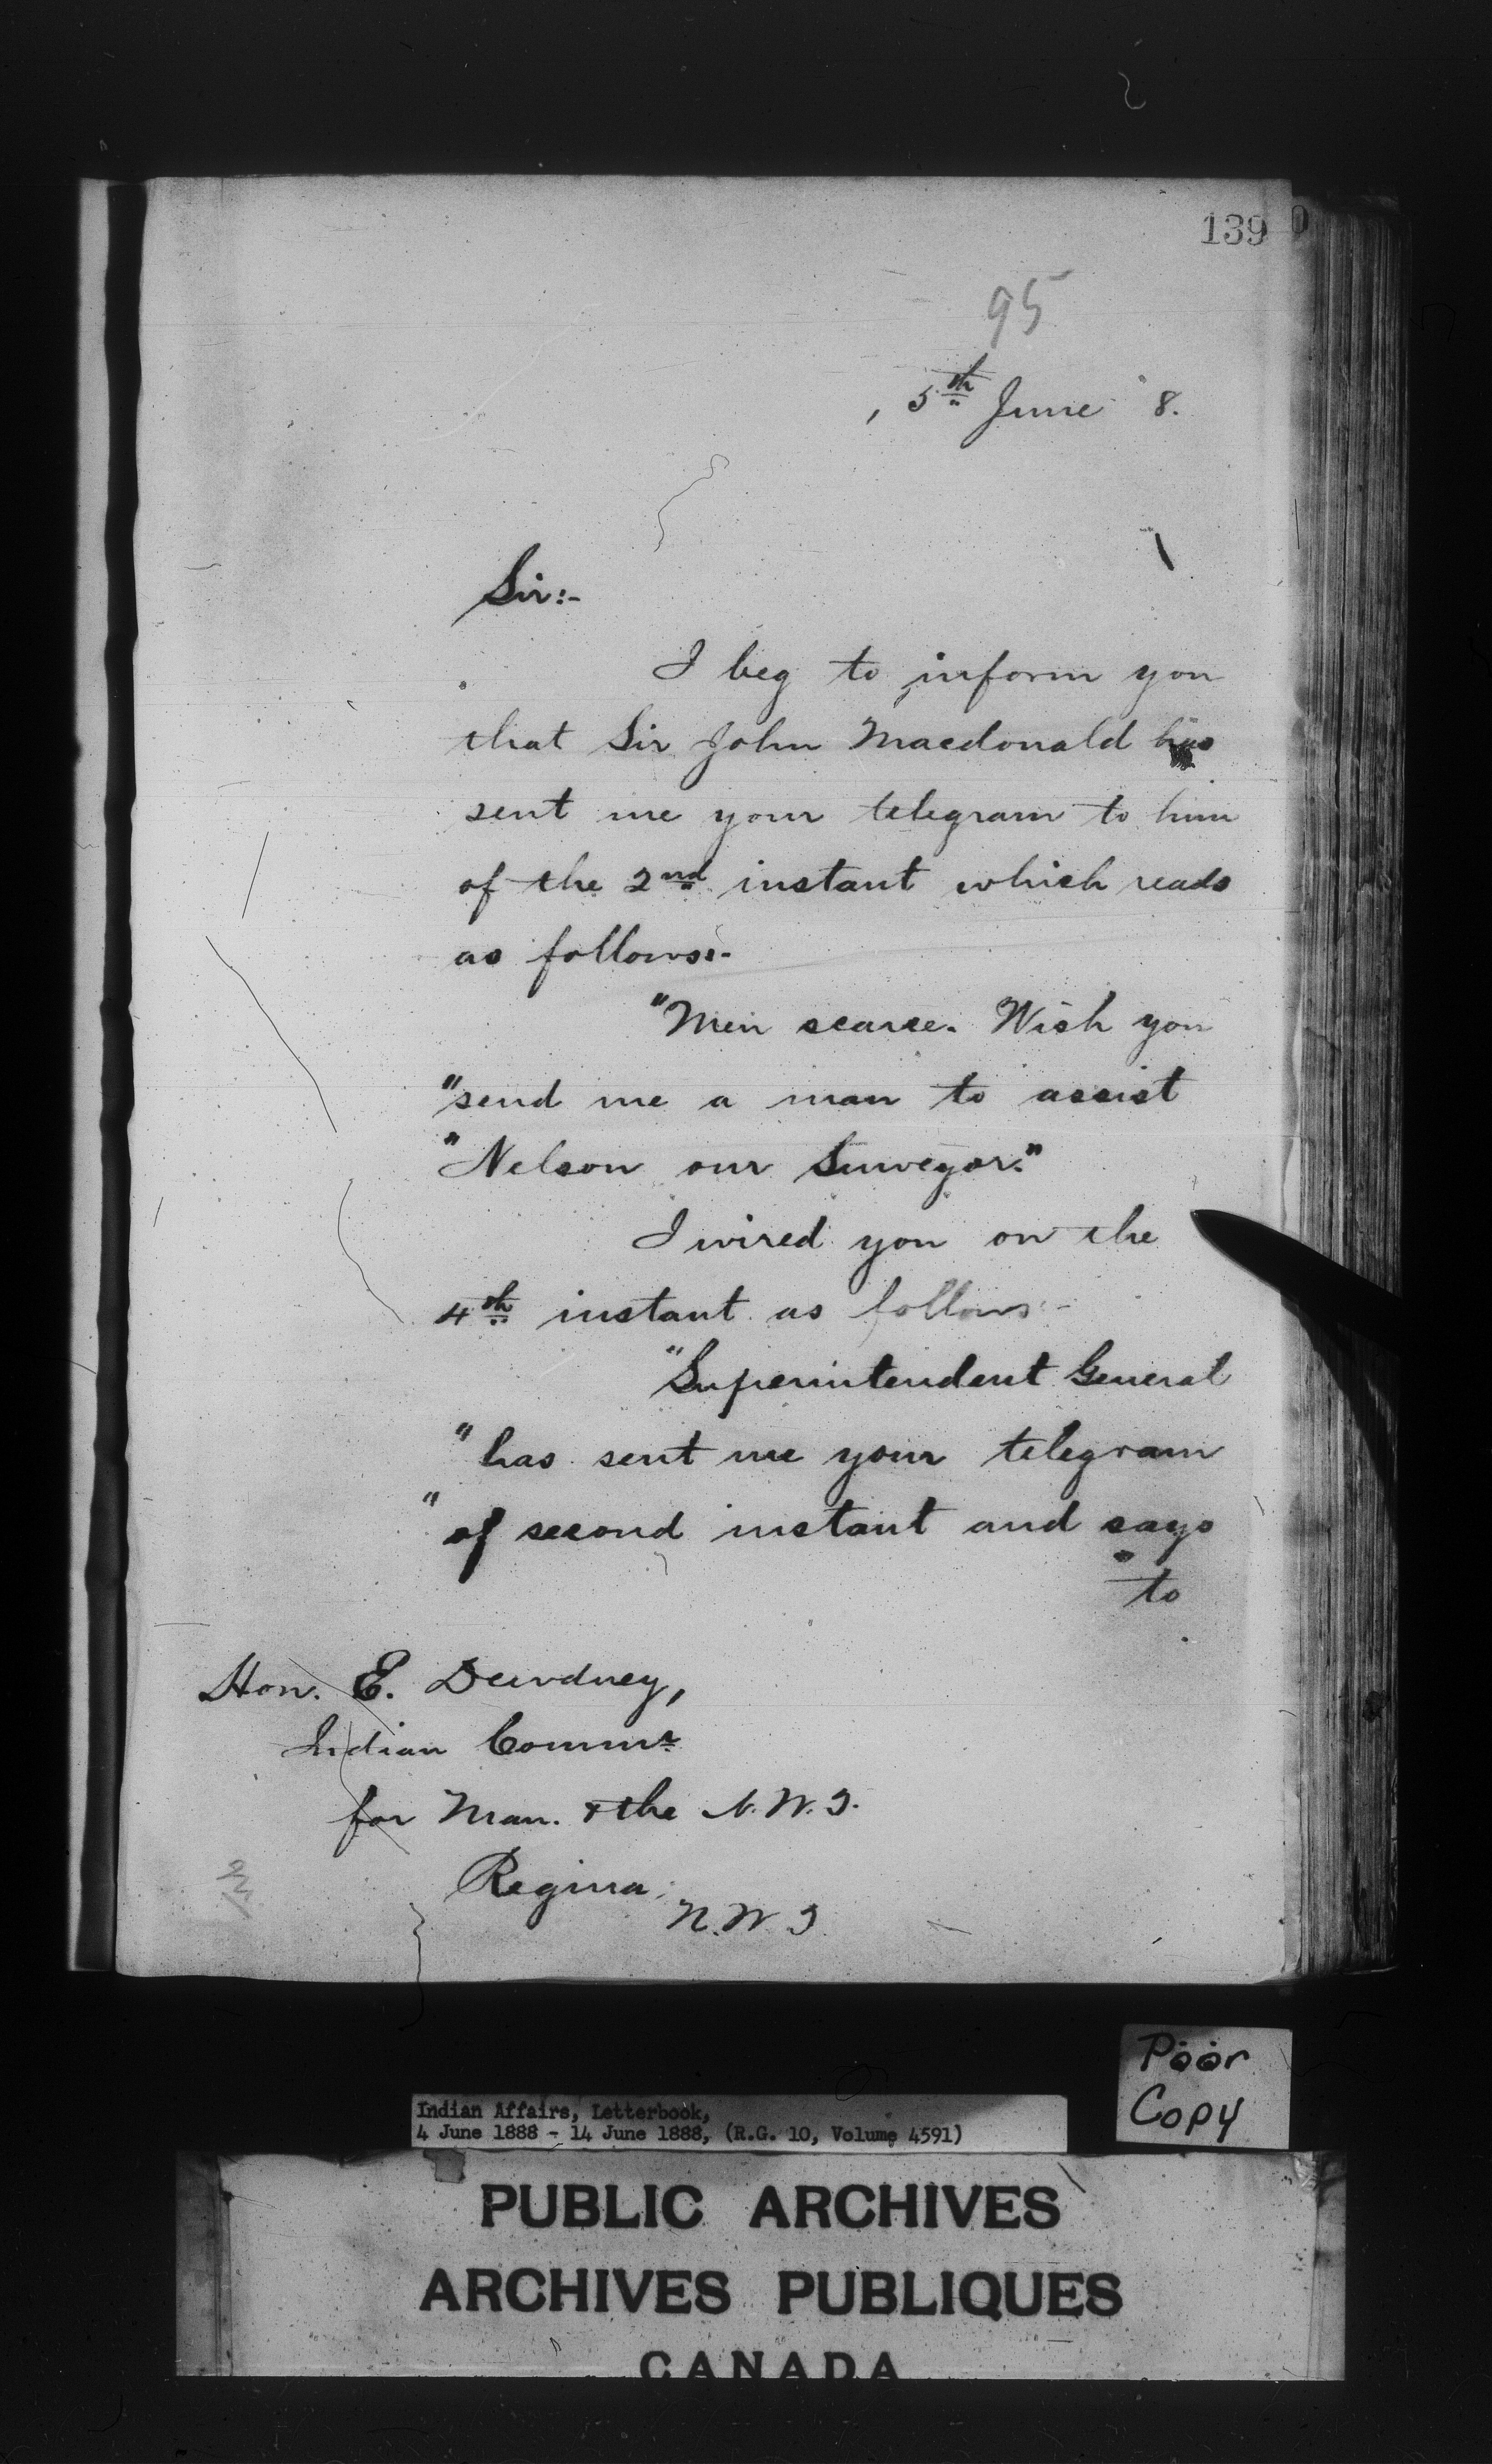 139
95
, 5th June 8.
Sir:-
I beg to inform you
that Sir John Macdonald has
sent me your telegram to him
of the 2nd instant which reads
as follows:-
"Men scarce. Wish you
"send me a man to assist
"Nelson our Surveyor."
I wired you on the
4th instant as follows:-
"Superintendent General
"has sent me your telegram
"of second instant and says
"to
Hon. E. Dewdney,
Indian Commr
for Man. & the N.W.T.
Regina,
N.W.T.
Poor
Copy
Indian Affairs, Letterbook,
4 June 1888 - 14 June 1888, (R.G. 10, Volume 4591)
PUBLIC ARCHIVES
ARCHIVES PUBLIQUES
CANADA